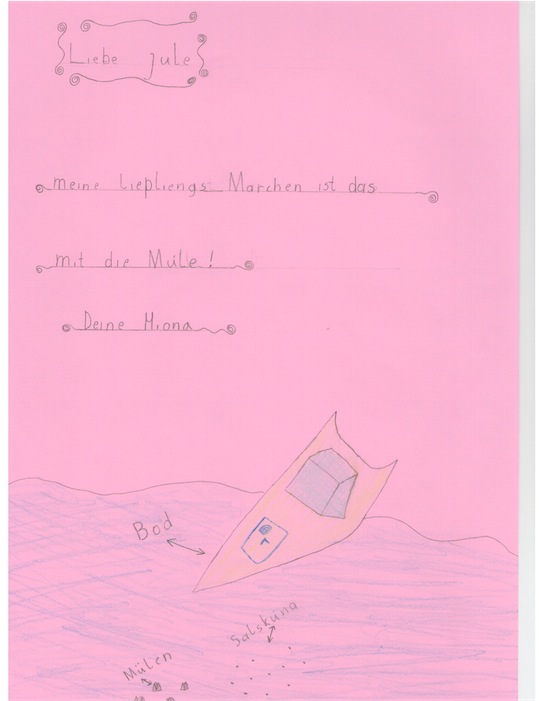 Liebe Jule
meine liepliengs Marchen ist das
mit die Müle!
Deine Miona
Bod
Salsküna
Mülen